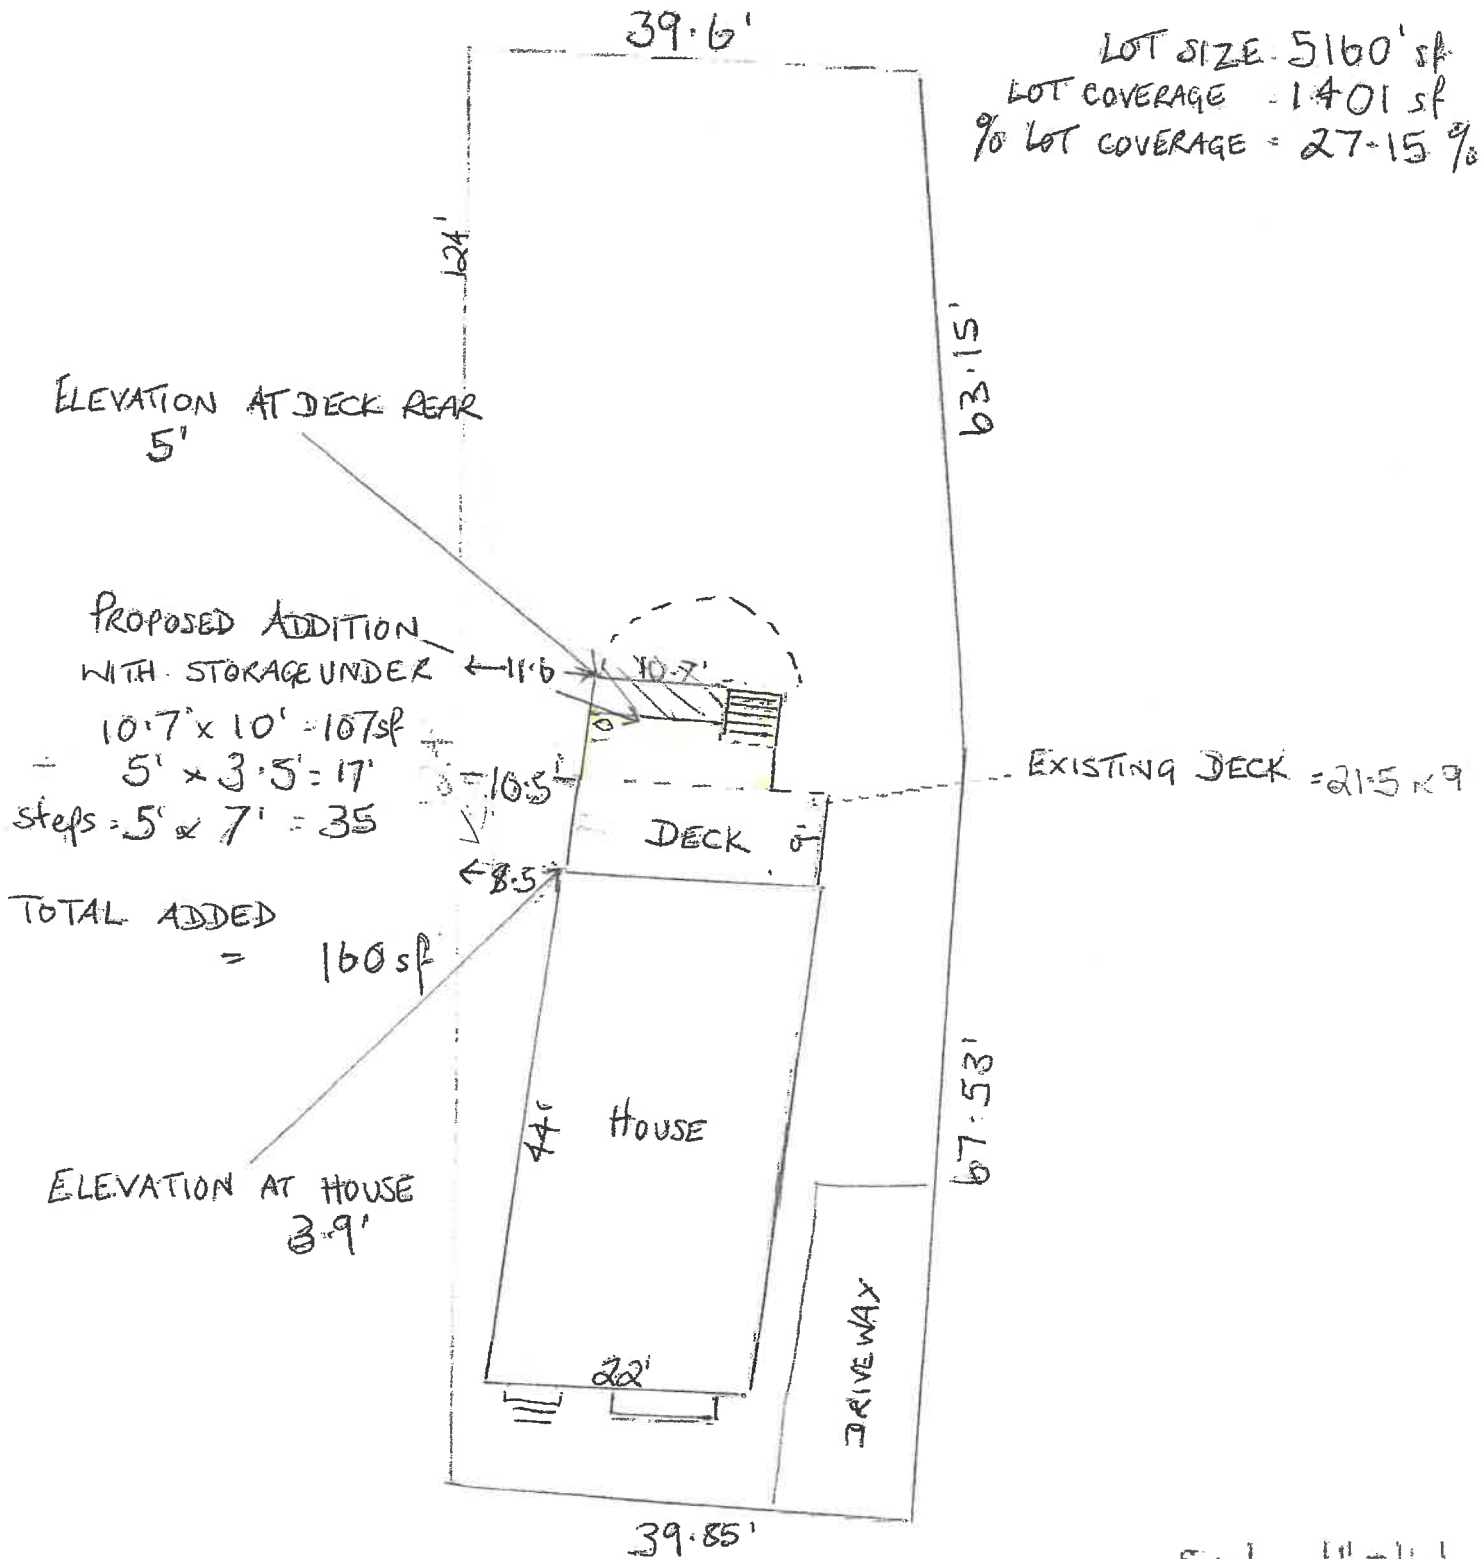 39.6'
LOT SIZE. 5160' sf
LOT COVERAGE - 1401 sf
% LOT COVERAGE = 27.15 %
124'
63.15'
ELEVATION AT DECK REAR
5'
PROPOSED ADDITION
WITH STORAGE UNDER
10.7' x 10' = 107sf
5' x 3.5' = 17'
steps = 5' x 7' = 35
TOTAL ADDED
= 160 sf
11.6
10.7'
10.5
8.5
EXISTING DECK = 21.5 x 9
DECK
9'
44'
HOUSE
67.53'
ELEVATION AT HOUSE
3.9'
22'
DRIVEWAY
39.85'